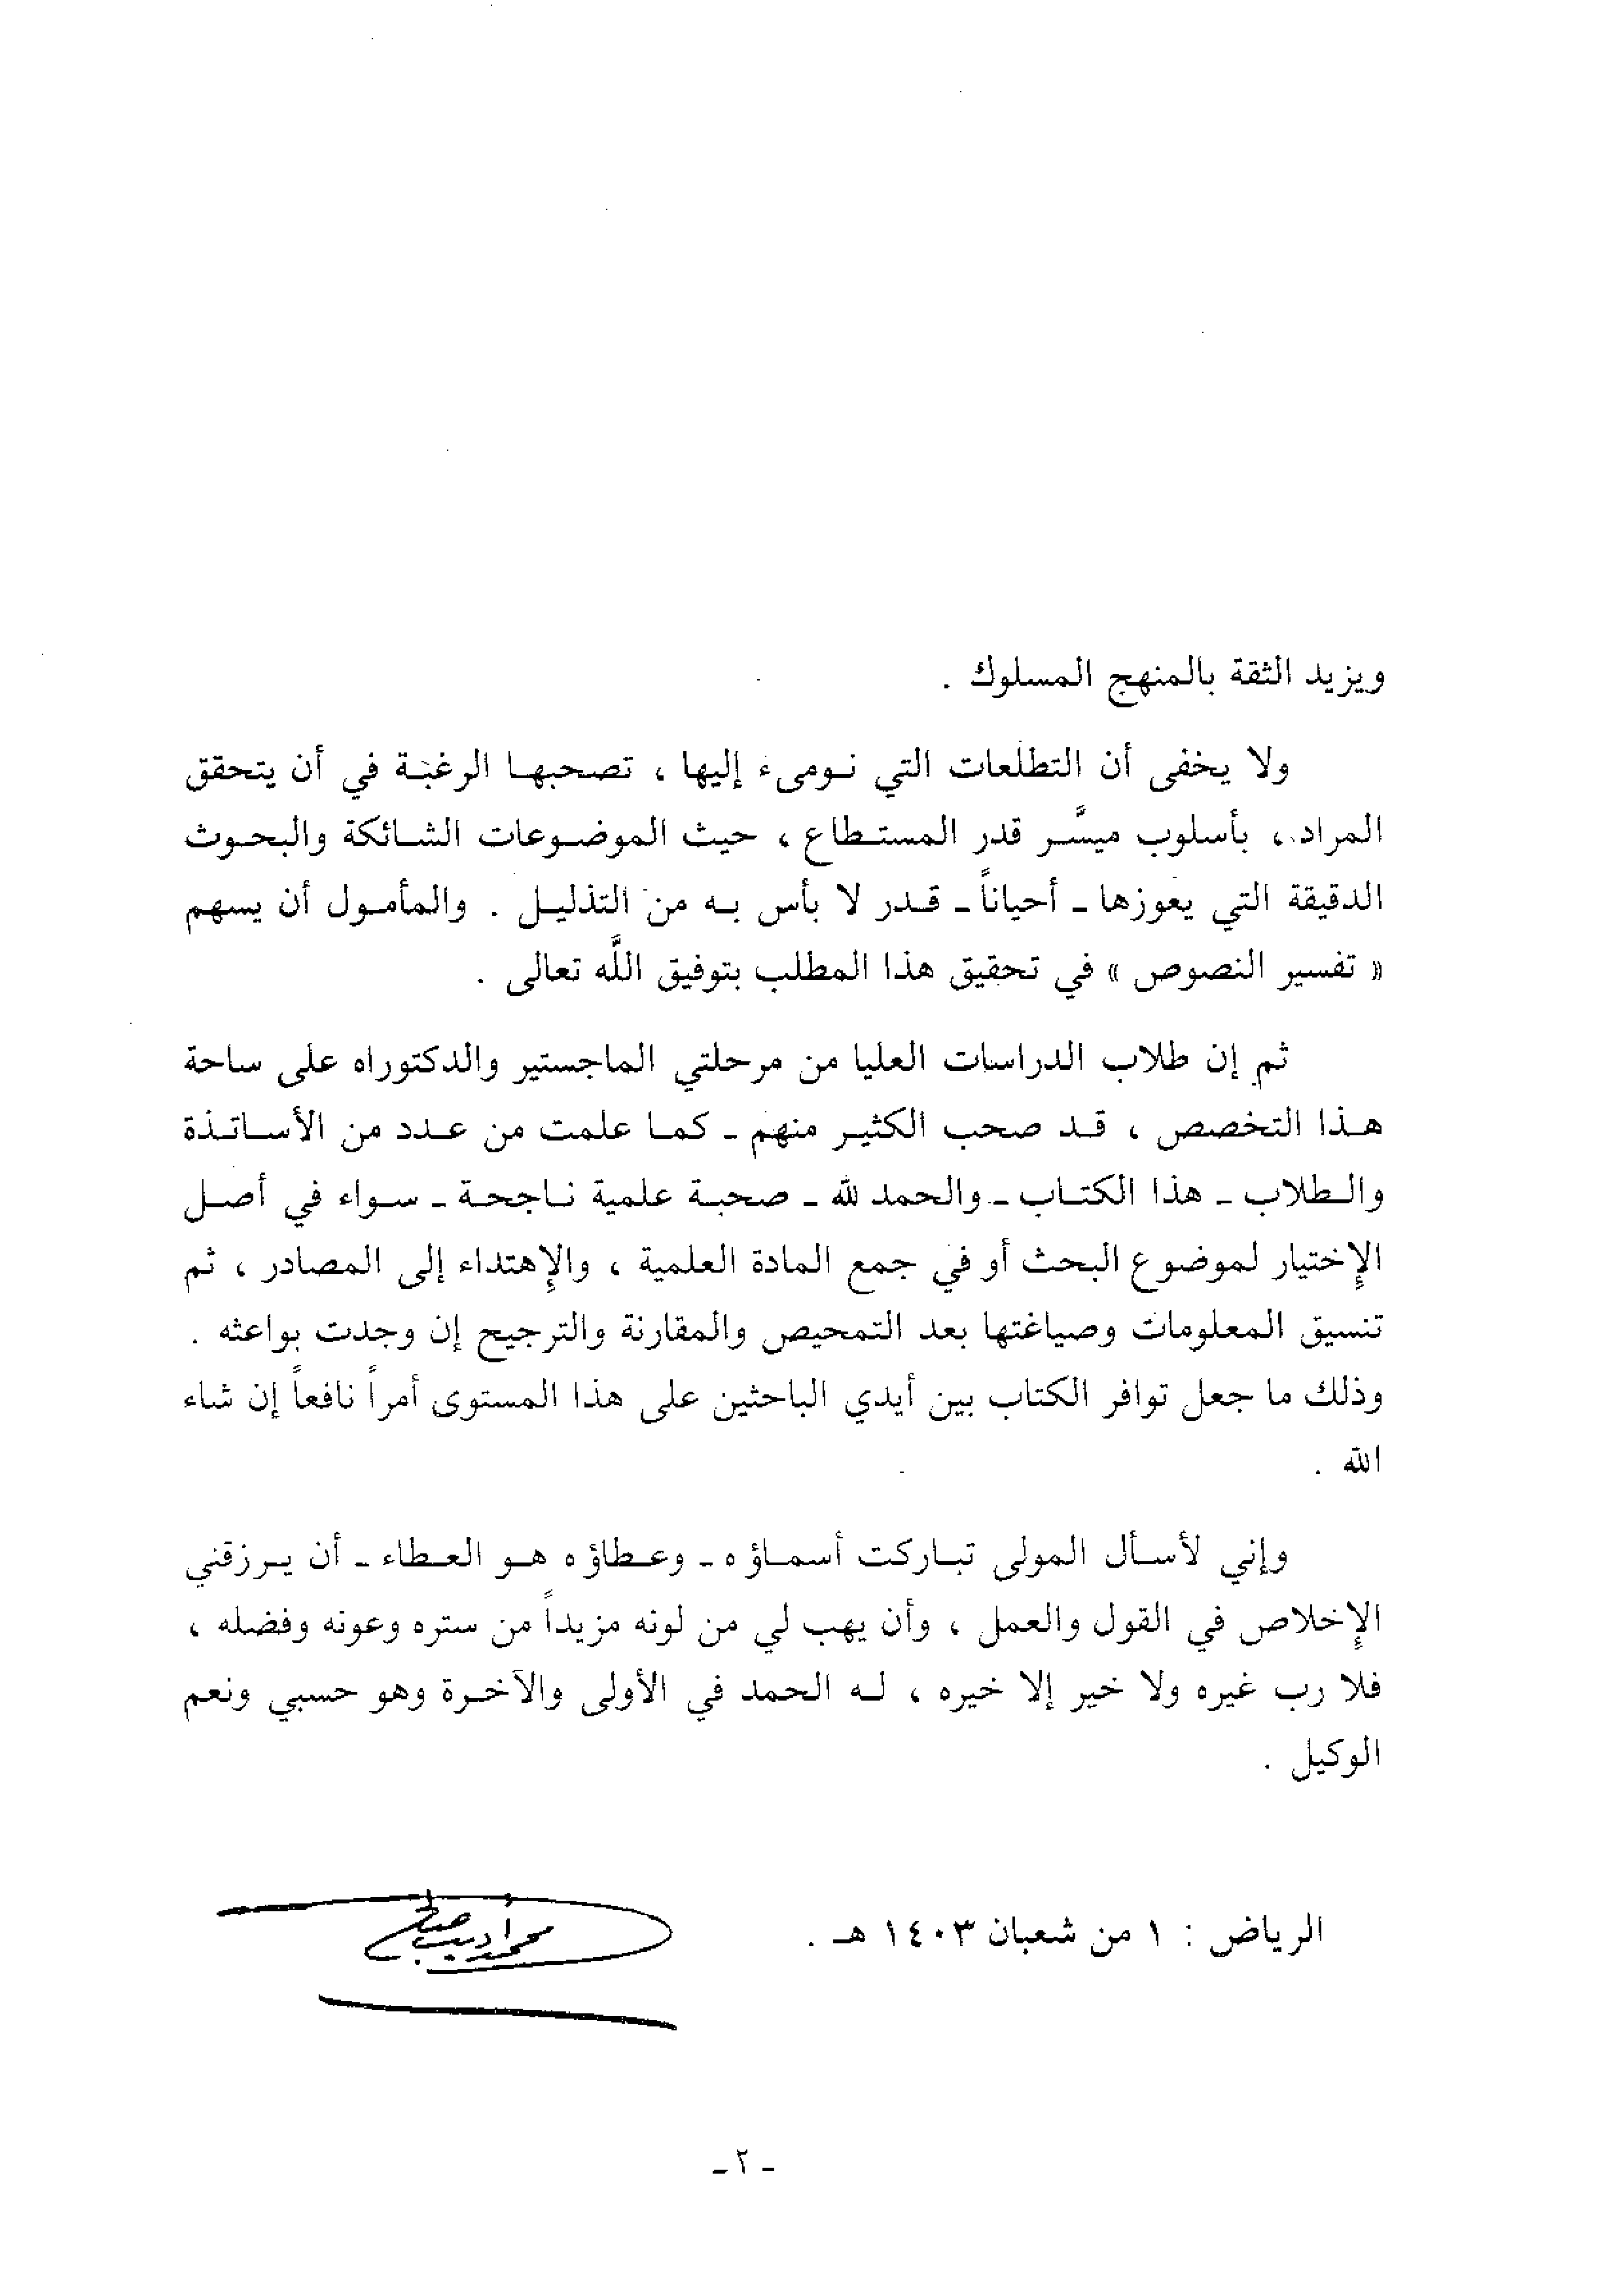 ويزيد الثقة بالمنهج المسلوك .
ولا يخفى أن التطلعات التي نومىء إليها ، تصحبها الرغبة في أن يتحقق
المراد ، بأسلوب ميسَّر قدر المستطاع ، حيث الموضوعات الشائكة والبحوث
الدقيقة التي يعوزها ـ أحياناً ـ قدر لا بأس به من التذليل . والمأمول أن يسهم
« تفسير النصوص » في تحقيق هذا المطلب بتوفيق اللَّه تعالى .
ثم إن طلاب الدراسات العليا من مرحلتي الماجستير والدكتوراه على ساحة
هذا التخصص ، قد صحب الكثير منهم ـ كما علمت من عدد من الأساتذة
والطلاب ـ هذا الكتاب ـ والحمد لله ـ صحبة علمية ناجحة ـ سواء في أصل
الإختيار لموضوع البحث أو في جمع المادة العلمية ، والإهتداء إلى المصادر ، ثم
تنسيق المعلومات وصياغتها بعد التمحيص والمقارنة والترجيح إن وجدت بواعثه .
وذلك ما جعل توافر الكتاب بين أيدي الباحثين على هذا المستوى أمراً نافعاً إن شاء
الله .
وإني لأسأل المولى تباركت أسماؤه ـ وعطاؤه هو العطاء ـ أن يرزقني
الإخلاص في القول والعمل ، وأن يهب لي من لونه مزيداً من ستره وعونه وفضله ،
فلا رب غيره ولا خير إلا خيره ، له الحمد في الأولى والآخرة وهو حسبي ونعم
الوكيل .
الرياض : ١ من شعبان ١٤٠٣ هـ .
محمد أديب صالح
ـ ٢ ـ